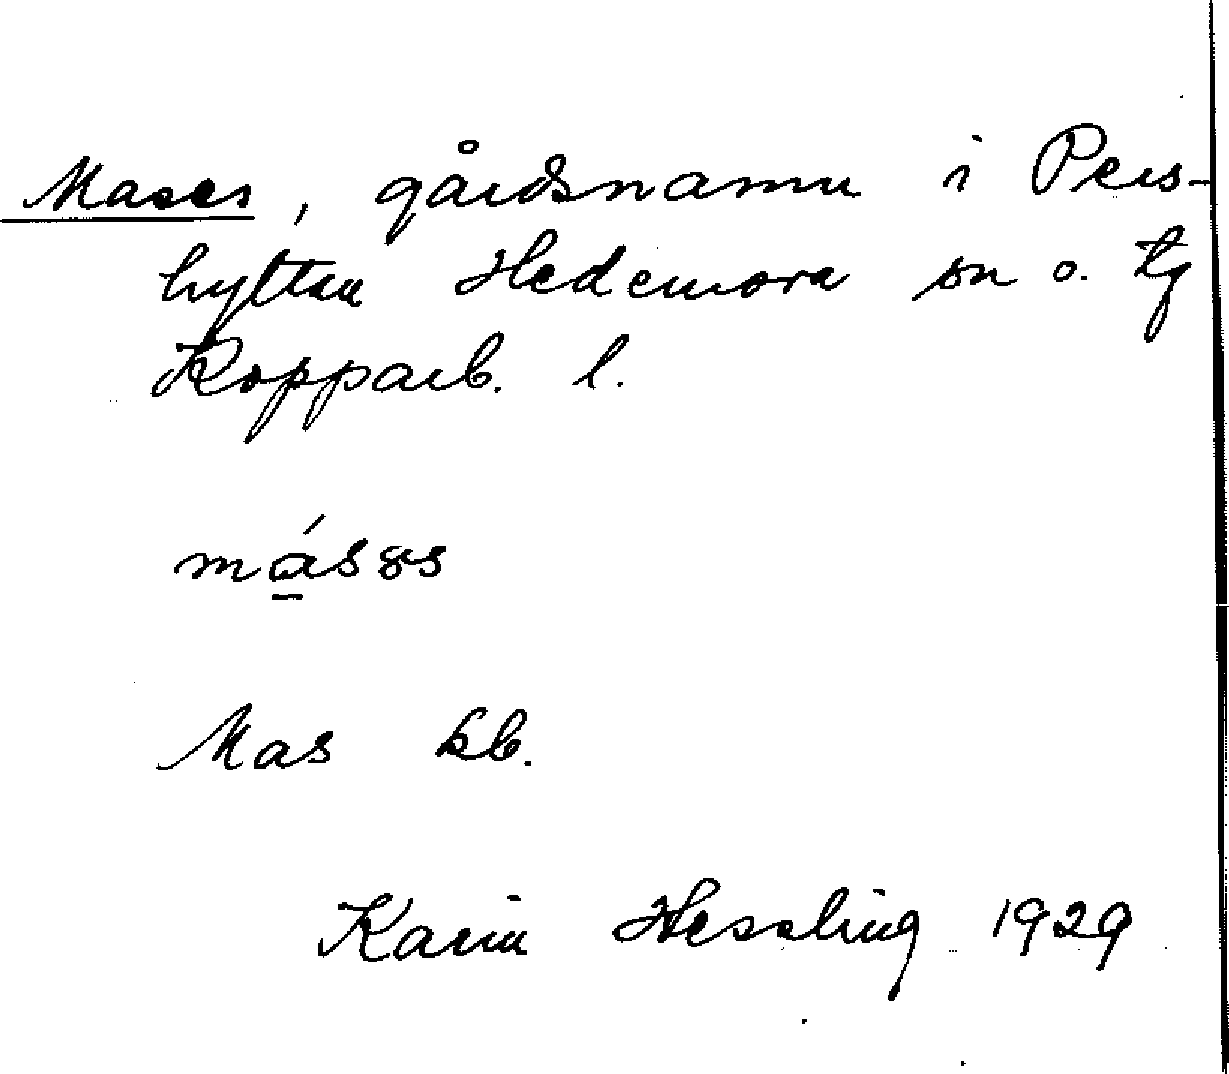 Mases, gårdsnamn i Pers-
hyttan Hedemora sn o. tg
Kopparb. l.
másəs
Mas kb.
Karin Hessling 1929